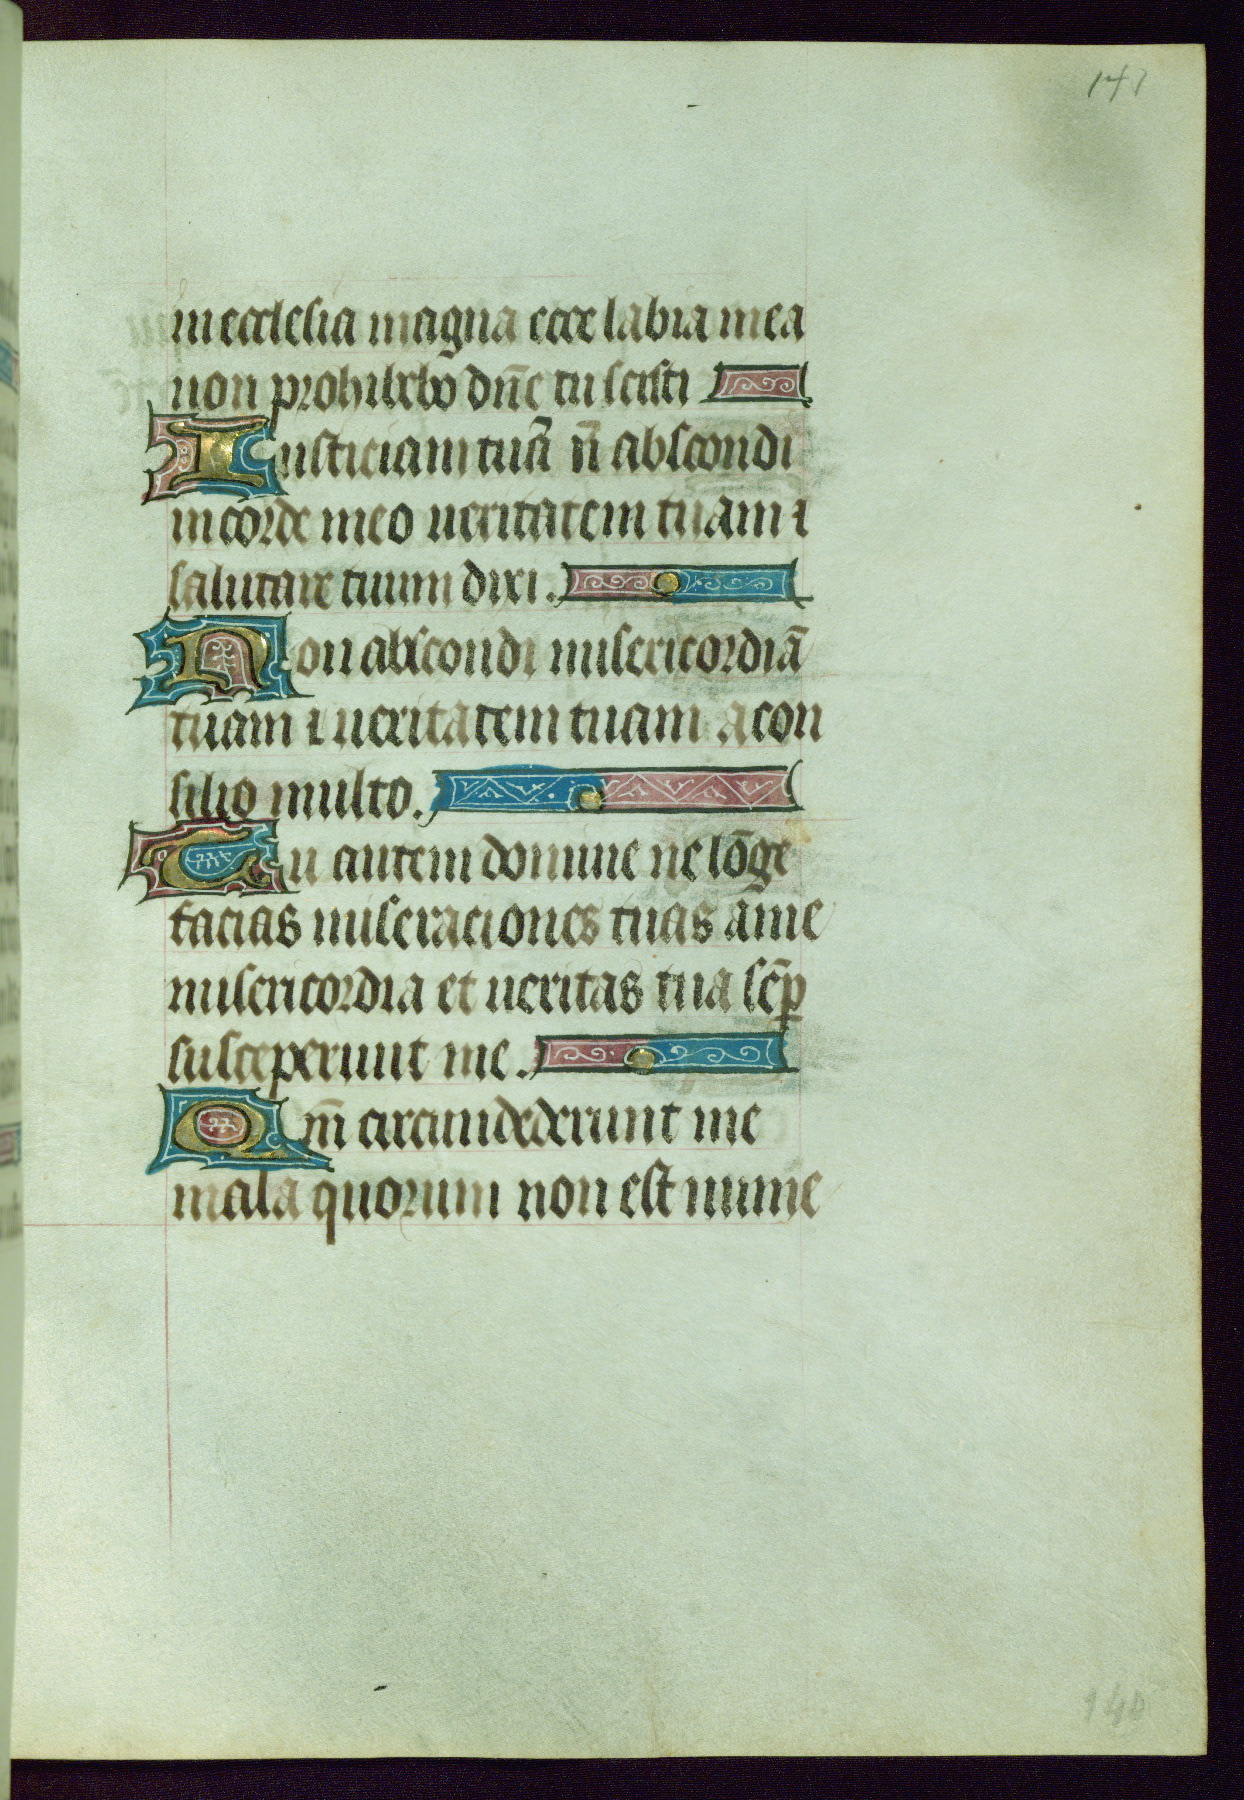 147
in ecclesia magna ecce labia mea
non prohibebo dn̄e tu scisti
Iusticiam tuā n̄ abscondi
in corde meo ueritatem tuam ⁊
salutare tuum dixi.
Non abscondi misericordiā
tuam ⁊ ueritatem tuam a con
silio multo.
Tu autem domine ne lōge
facias miseraciones tuas a me
misericordia et ueritas tua sēp
susceperunt me.
Qm̄ circumdederunt me
mala quorum non est nume
140